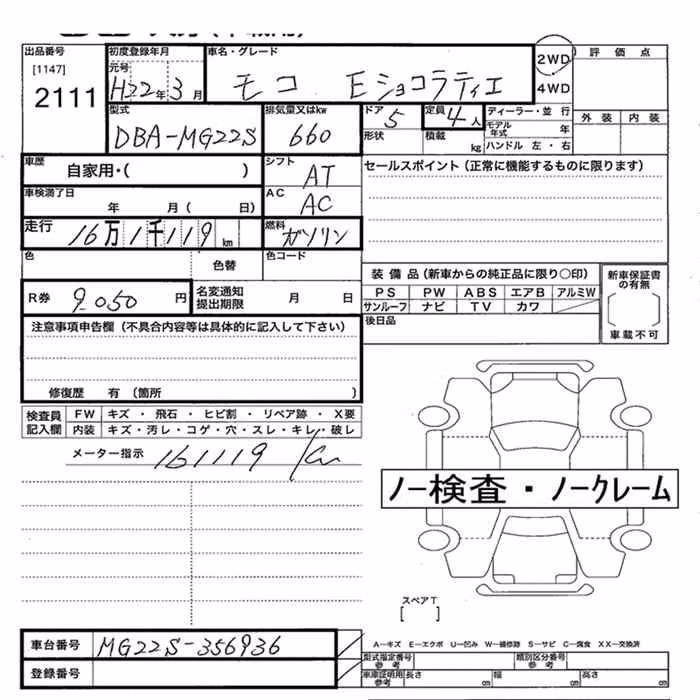 出品番号
[1147]
2111
初度登録年月
元号
H22年3月
車名・グレード
モコ Eショコラティエ
2WD
4WD
評価点
外装 内装
型式
DBA-MG22S
排気量又はkw
660
ドア
5
形状
定員
4人
積載
kg
ディーラー・並行
モデル年式 年
ハンドル 左・右
車歴
自家用・( )
シフト
AT
車検満了日
年 月( 日)
AC
AC
走行
16万1千119km
燃料
ガソリン
色
色替
色コード
R券
9050円
名変通知
提出期限
月 日
セールスポイント(正常に機能するものに限ります)
装備品(新車からの純正品に限り○印)
PS PW ABS エアB アルミW
サンルーフ ナビ TV カワ
後日品
新車保証書
の有無
[ ]
車載不可
注意事項申告欄(不具合内容等は具体的に記入して下さい)
修復歴 有(箇所 )
検査員
記入欄
FW キズ・飛石・ヒビ割・リペア跡・X要
内装 キズ・汚レ・コゲ・穴・スレ・キレ・破レ
メーター指示 161119 km
ノー検査・ノークレーム
スペアT
[ ]
車台番号
MG22S-356936
登録番号
A―キズ E―エクボ U―凹み W―補修跡 S―サビ C―腐食 XX―交換済
型式指定番号
参考
類別区分番号
参考
車庫証明用
参考
長さ cm 幅 cm 高さ cm